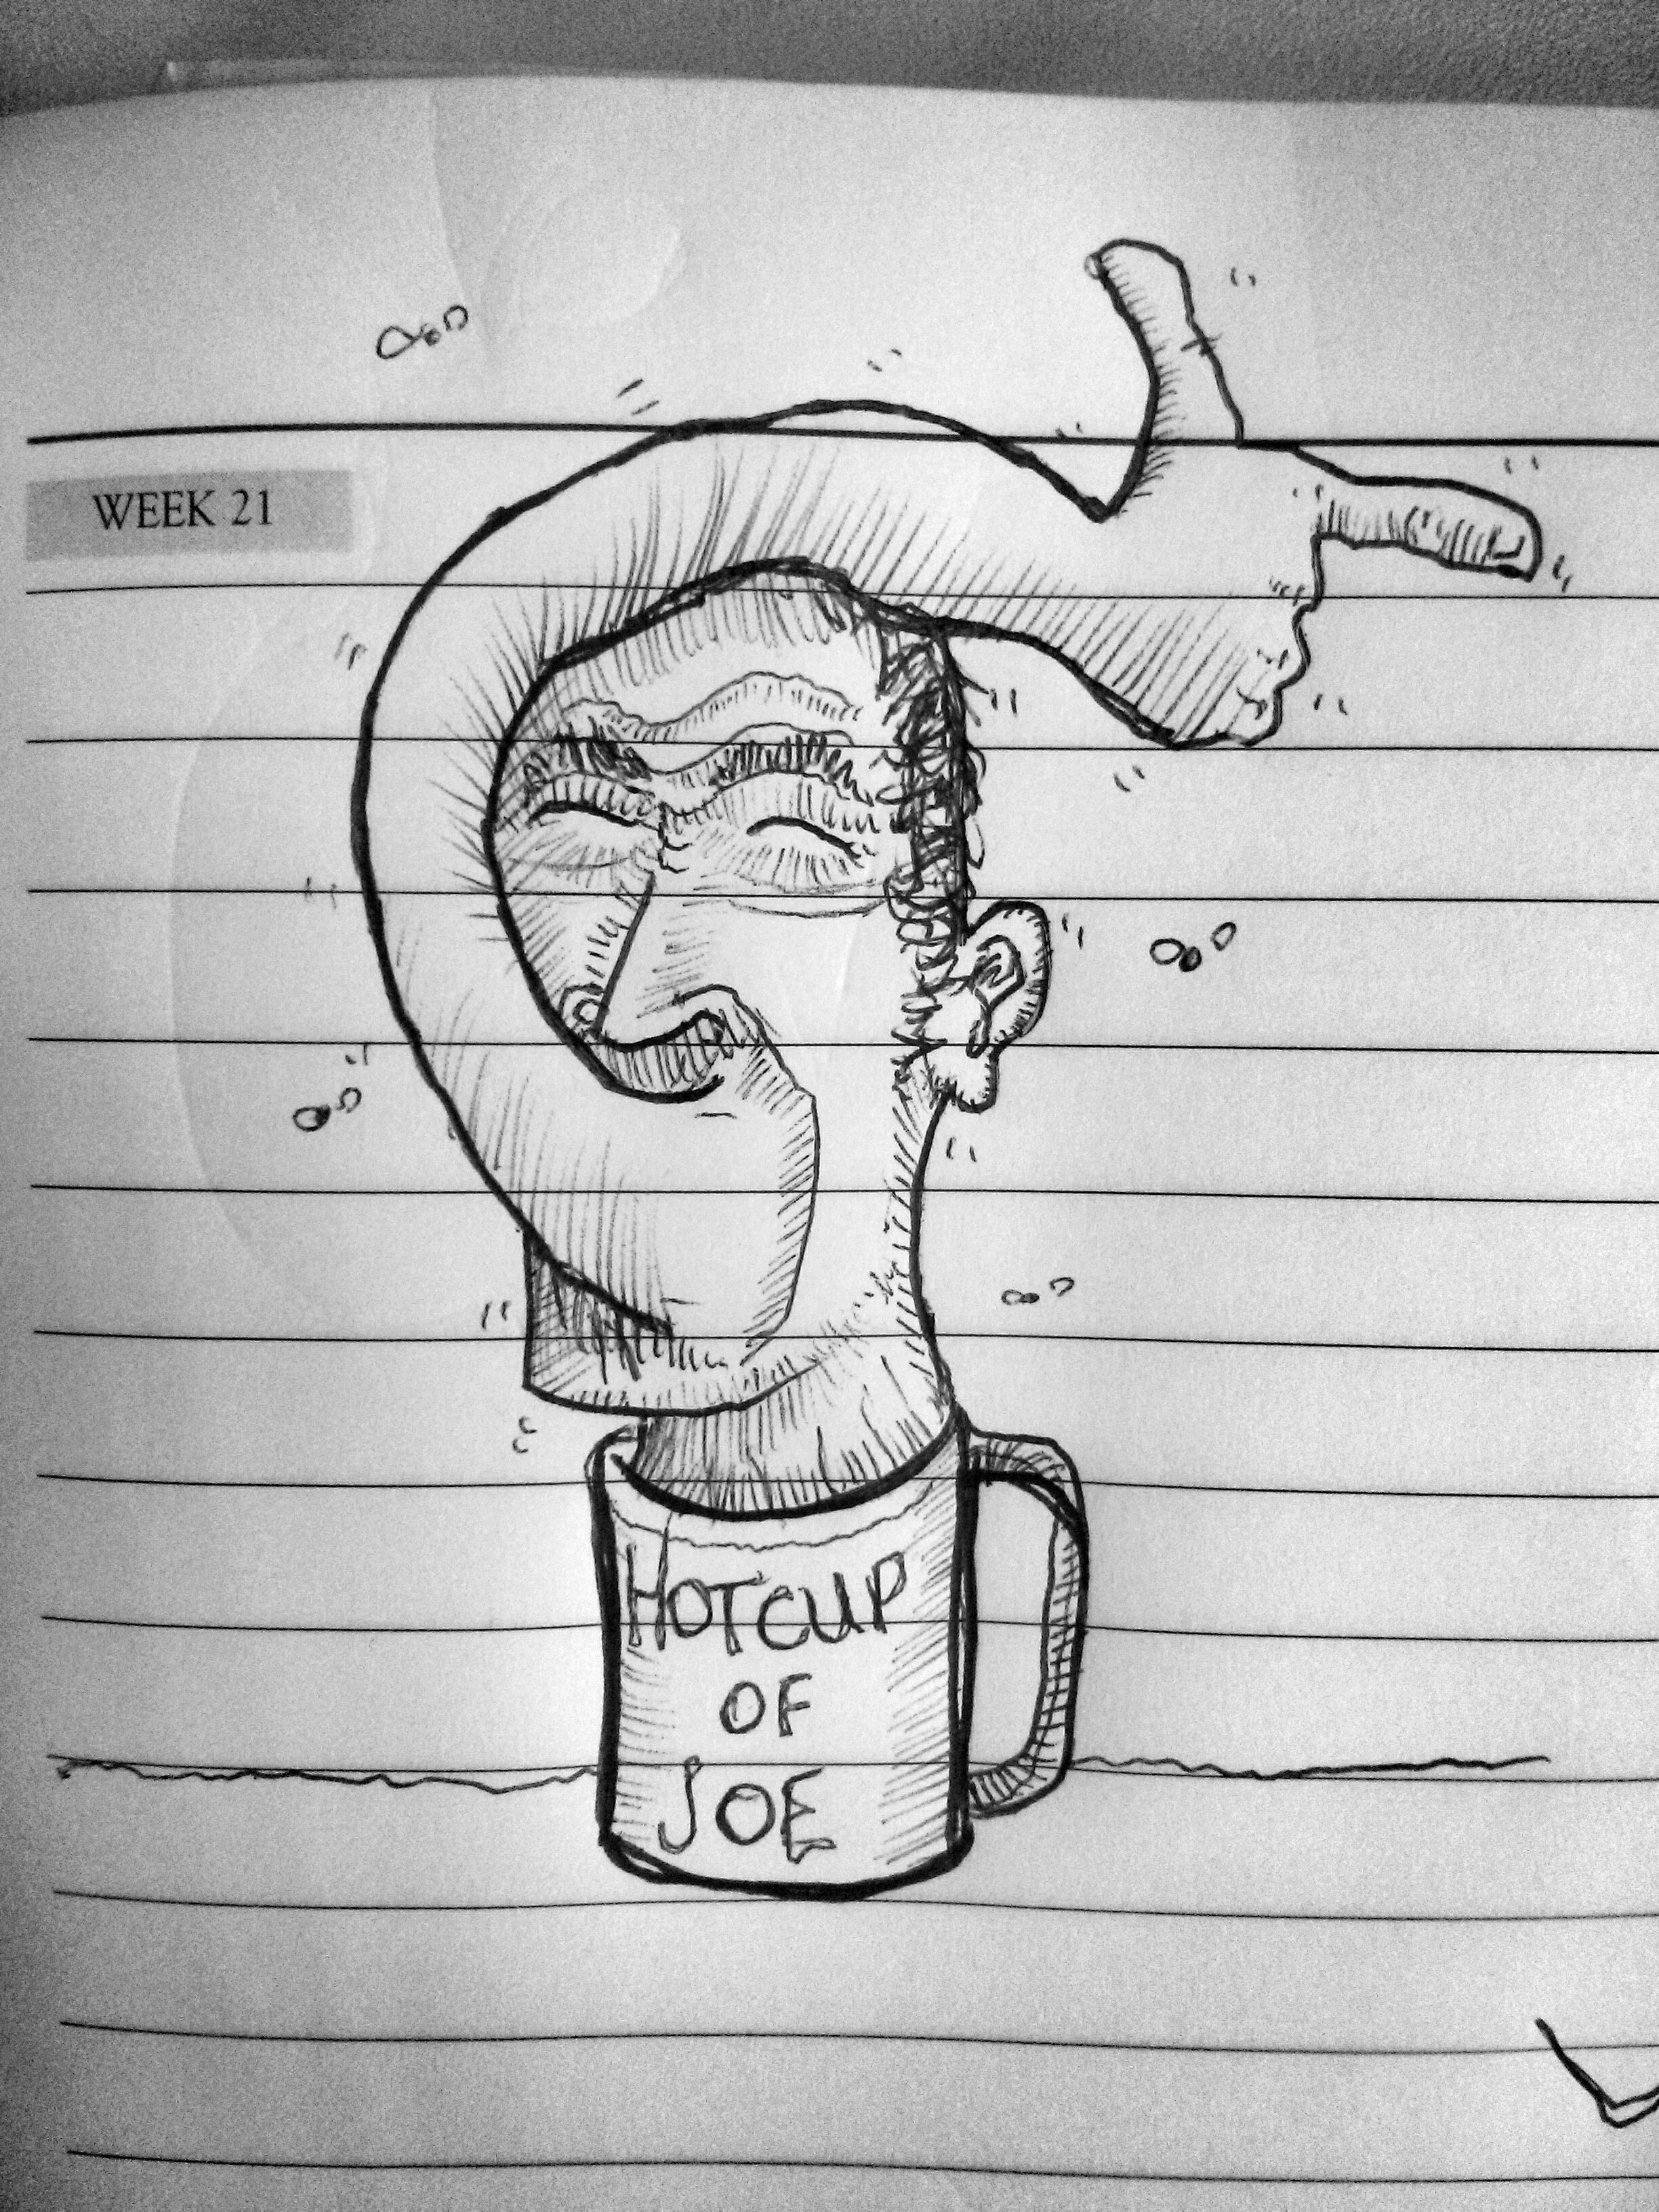 WEEK 21
HOTCUP
OF
JOE